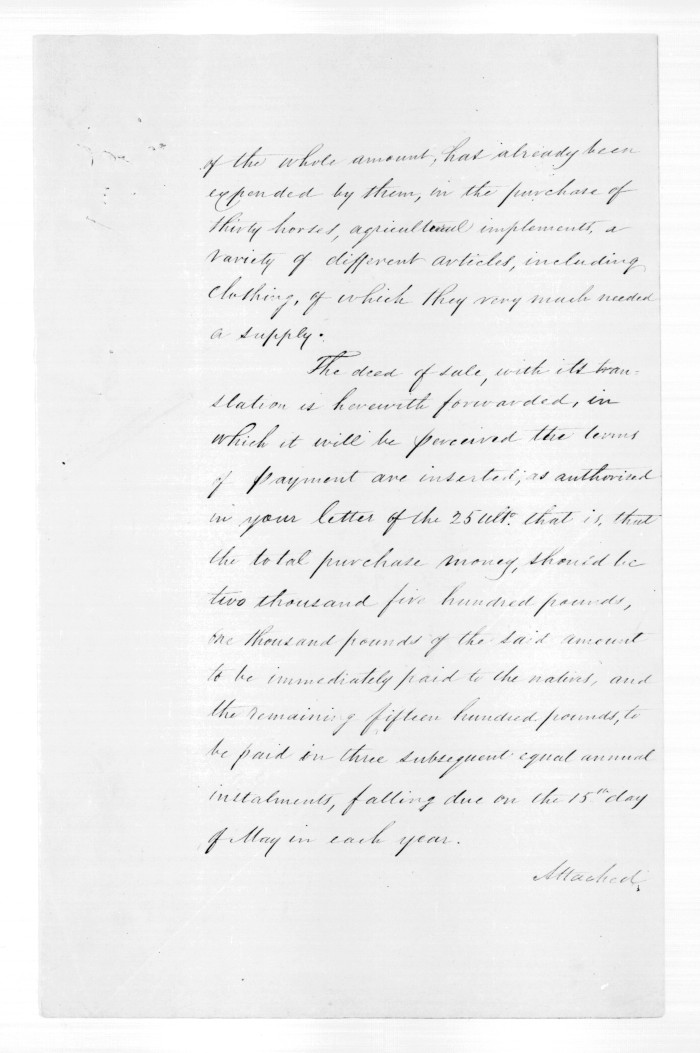 of the whole amount, has already been
expended by them, in the purchase of
thirty horses, agricultural implements, a
variety of different articles, including
clothing, of which they very much needed
a supply.
The deed of sale, with its tran-
slation is herewith forwarded, in
which it will be perceived the terms
of payment are inserted; as authorised
in your letter of the 25 ulto. that is, that
the total purchase money, should be
two thousand five hundred pounds,
one thousand pounds of the said amount
to be immediately paid to the natives, and
the remaining fifteen hundred pounds, to
be paid in three subsequent equal annual
instalments, falling due on the 15th day
of May in each year.
Attached,